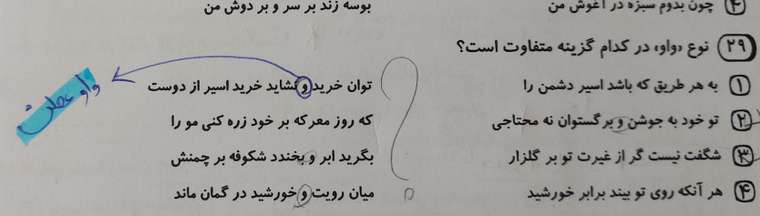 ۴ چون بدوم سبزه در آغوش من بوسه زند بر سر و بر دوش من
۲۹ نوع «واو» در کدام گزینه متفاوت است؟
۱ به هر طریق که باشد اسیر دشمن را توان خرید و نشاید خرید اسیر از دوست
۲ تو خود به جوشن و برگستوان نه محتاجی که روز معرکه بر خود زره کنی مو را
۳ شگفت نیست گر از غیرت تو بر گلزار بگرید ابر و بخندد شکوفه بر چمنش
۴ هر آنکه روی تو بیند برابر خورشید میان رویت و خورشید در گمان ماند
واو عطف
؟